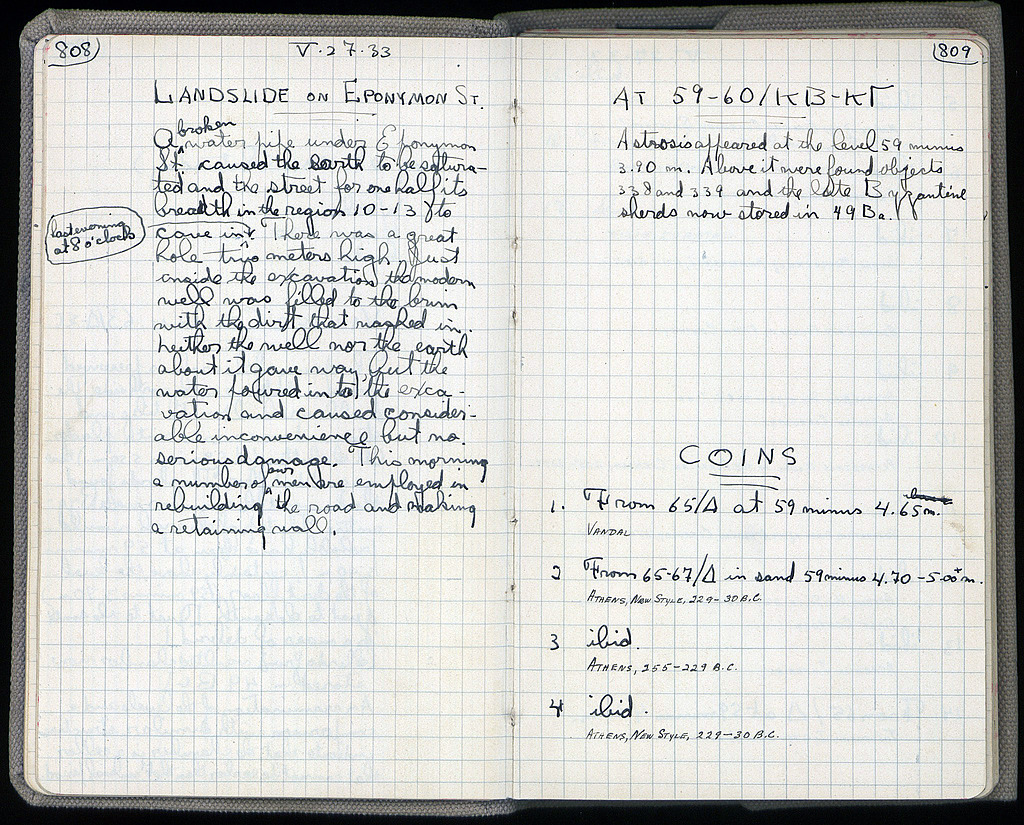 808
V·27·33
LANDSLIDE ON EPONYMON ST.
broken
A water pipe under Eponymon
St. caused the earth to be satura-
ted and the street for one half its
breadth in the region 10-13/ to
last evening
at 8 o'clock
cave in. There was a great
hole two meters high. Just
inside the excavation the modern
well was filled to the brim
with the dirt that washed in.
Neither the well nor the earth
about it gave way, but the
water poured into the exca-
vation and caused consider-
able inconvenience but no
serious damage. This morning
our
a number of men are employed in
rebuilding the road and making
a retaining wall.
809
AT 59-60/ΚΒ-ΚΓ
A strosis appeared at the level 59 minus
3.90 m. Above it were found objects
338 and 339 and the late Byzantine
sherds now stored in 49 Ba.
COINS
1. From 65/Δ at 59 minus 4.65m.
VANDAL
2 From 65-67/Δ in sand 59 minus 4.70-5.00+m.
ATHENS, NEW STYLE, 229-30 B.C.
3 ibid.
ATHENS, 255-229 B.C.
4 ibid.
ATHENS, NEW STYLE, 229-30 B.C.